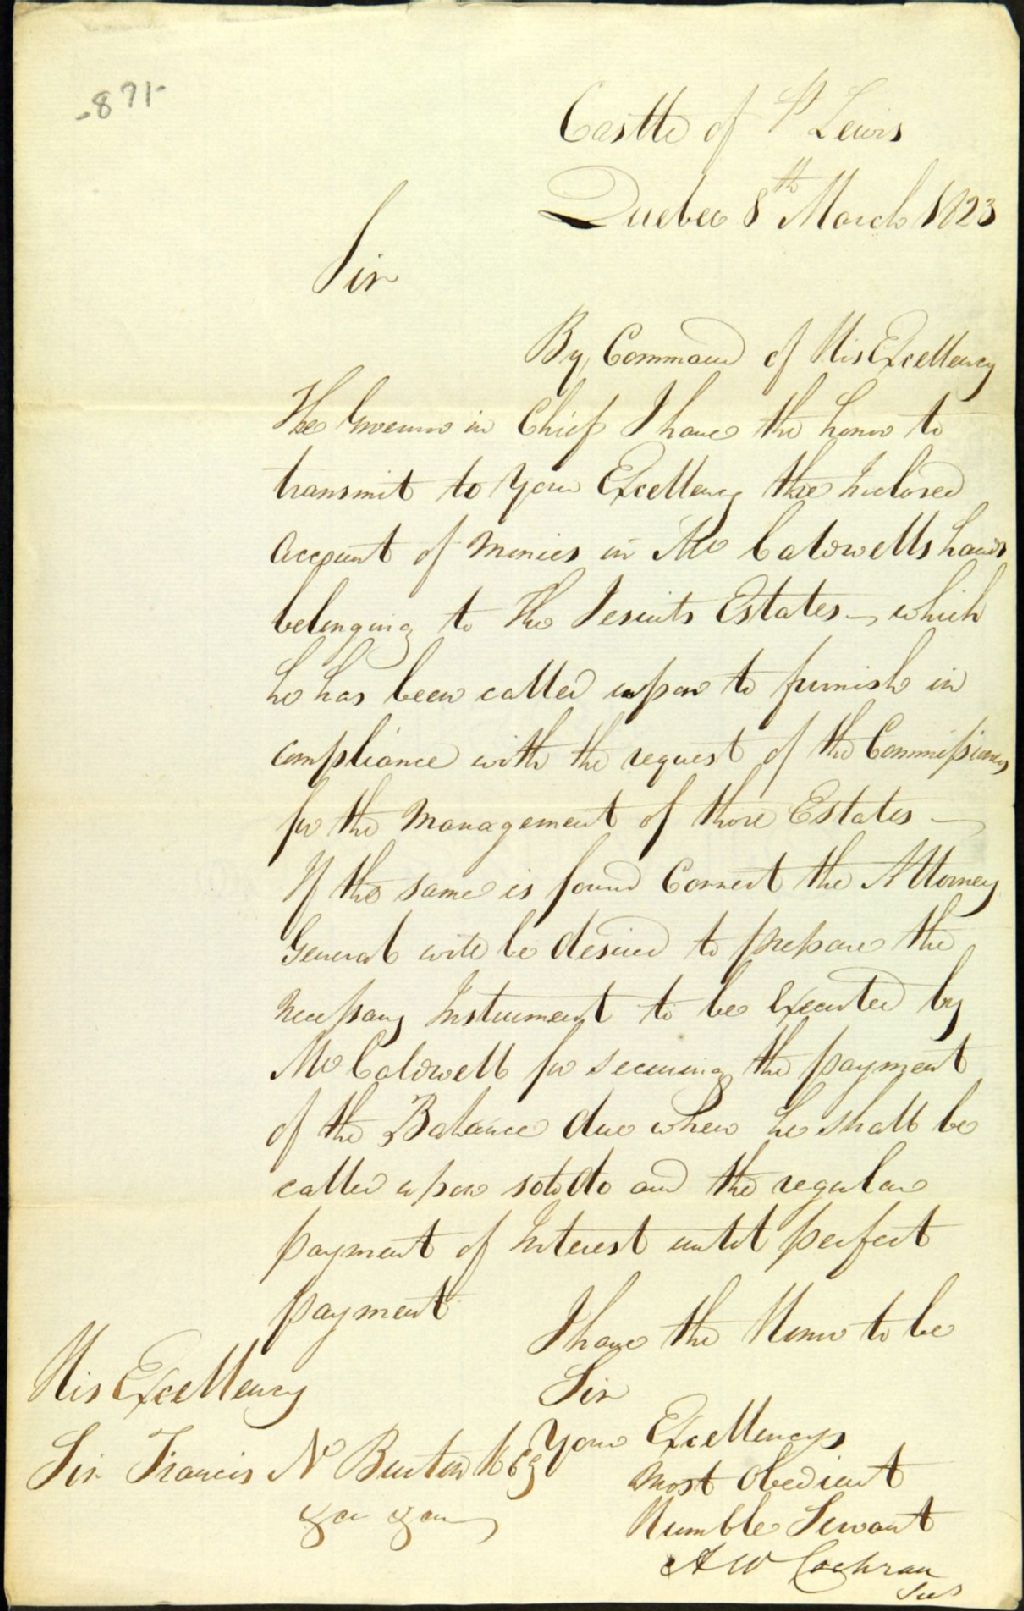 -871-
Castle of St Lewis
Quebec 8th March 1823
Sir
By Command of His Excellency
The Governor in Chief I have the honor to
transmit to Your Excellency the Inclosed
Account of Monies in Mr Caldwells hands
belonging to The Jesuits Estates — which
he has been called upon to furnish in
compliance with the request of the Commissioners
for the Management of those Estates —
If the same is found Correct the Attorney
General will be desired to prepare the
necessary Instrument to be Executed by
Mr Caldwell for securing the payment
of the Balance due when he shall be
called upon so to do and the regular
payment of Interest until perfect
payment
I have the Honor to be
Sir
Your Excellencys
most obedient
Humble Servant
A W Cochran
Sec
His Excellency
Sir Francis N Burton KCG
&ca &ca